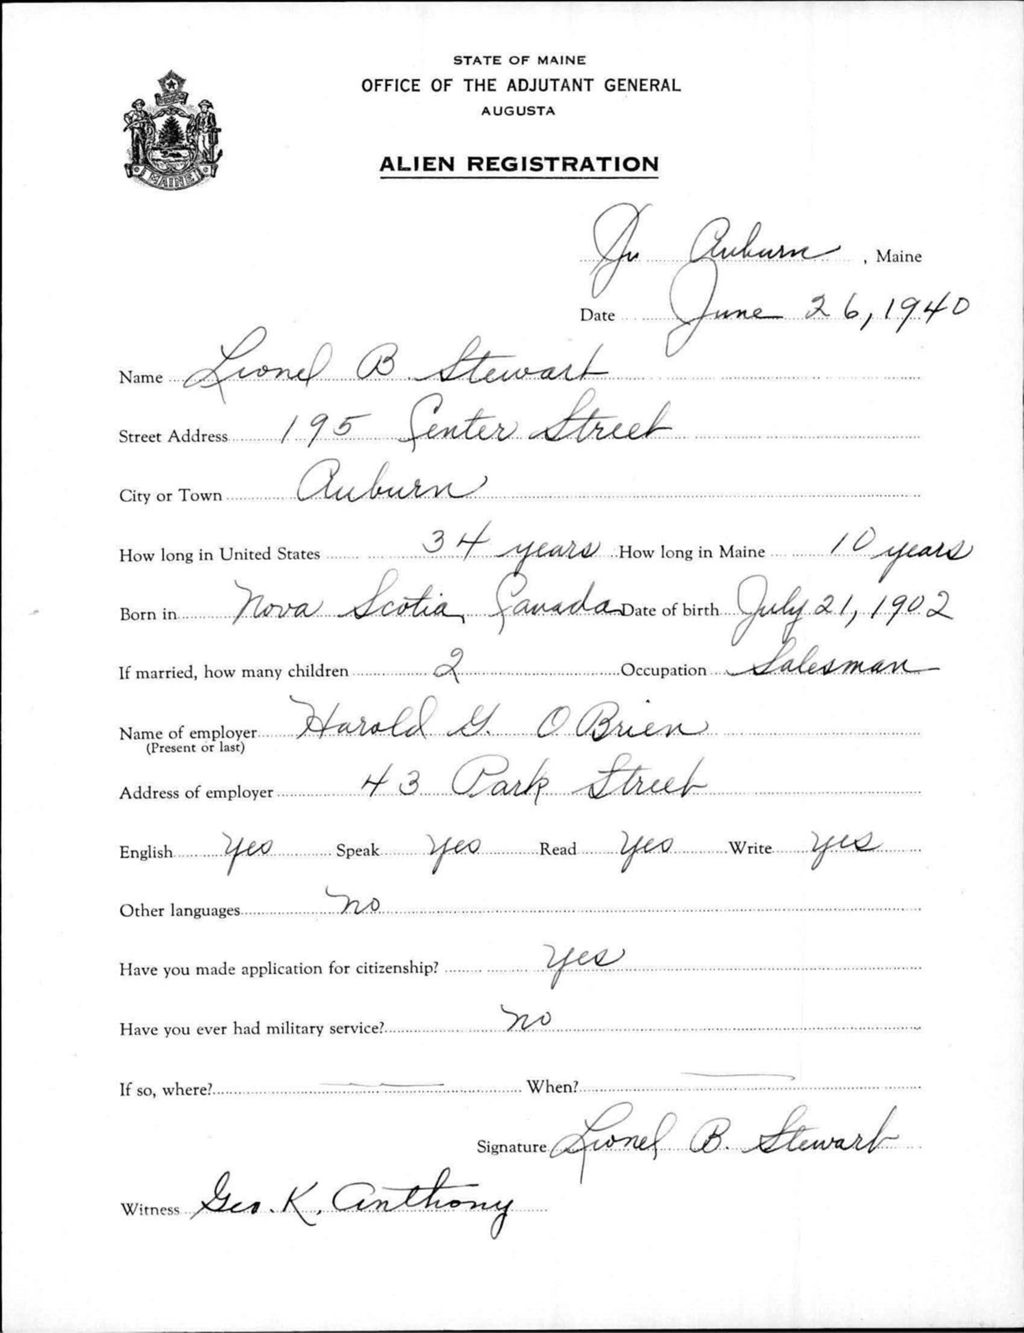 STATE OF MAINE
OFFICE OF THE ADJUTANT GENERAL
AUGUSTA
ALIEN REGISTRATION
MAINE
Auburn, Maine
Date June 26, 1940
Name Lionel B Stewart
Street Address 195 Center Street
City or Town Auburn
How long in United States 34 years How long in Maine 10 years
Born in Nova Scotia, Canada Date of birth July 21, 1902
If married, how many children 2 Occupation Salesman
Name of employer Harold G. O Brien
(Present or last)
Address of employer 43 Park Street
English Yes Speak Yes Read Yes Write Yes
Other languages No
Have you made application for citizenship? Yes
Have you ever had military service? No
If so, where? — When? —
Signature Lionel B. Stewart
Witness Geo. K. Anthony